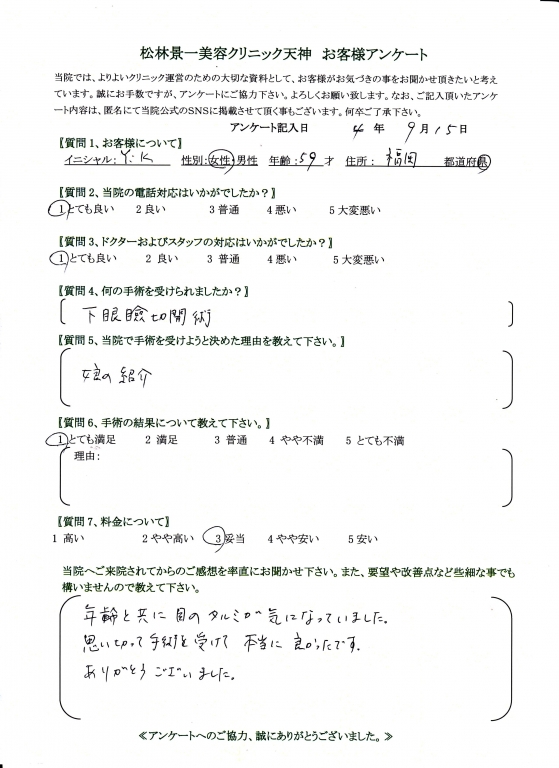 松林景一美容クリニック天神　お客様アンケート
当院では、よりよいクリニック運営のための大切な資料として、お客様がお気づきの事をお聞かせ頂きたいと考え
ています。誠にお手数ですが、アンケートにご協力下さい。よろしくお願い致します。なお、ご記入頂いたアンケ
ート内容は、匿名にて当院公式のSNSに掲載させて頂く事もございます。何卒ご了承下さい。
アンケート記入日　4 年 9 月 15 日
【質問1、お客様について】
イニシャル： Y.K　性別：女性・男性　年齢：59 才　住所： 福岡　都道府県
【質問2、当院の電話対応はいかがでしたか？】
1とても良い　2良い　3普通　4悪い　5大変悪い
【質問3、ドクターおよびスタッフの対応はいかがでしたか？】
1とても良い　2 良い　3 普通　4悪い　5大変悪い
【質問4、何の手術を受けられましたか？】
下眼瞼切開術
【質問5、当院で手術を受けようと決めた理由を教えて下さい。】
娘の紹介
【質問6、手術の結果について教えて下さい。】
1とても満足　2 満足　3 普通　4 やや不満　5 とても不満
理由：
【質問7、料金について】
1 高い　2やや高い　3妥当　4やや安い　5安い
当院へご来院されてからのご感想を率直にお聞かせ下さい。また、要望や改善点など些細な事でも
構いませんので教えて下さい。
年齢と共に目のタルミが気になっていました。
思い切って手術を受けて 本当に良かったです。
ありがとうございました。
≪アンケートへのご協力、誠にありがとうございました。≫